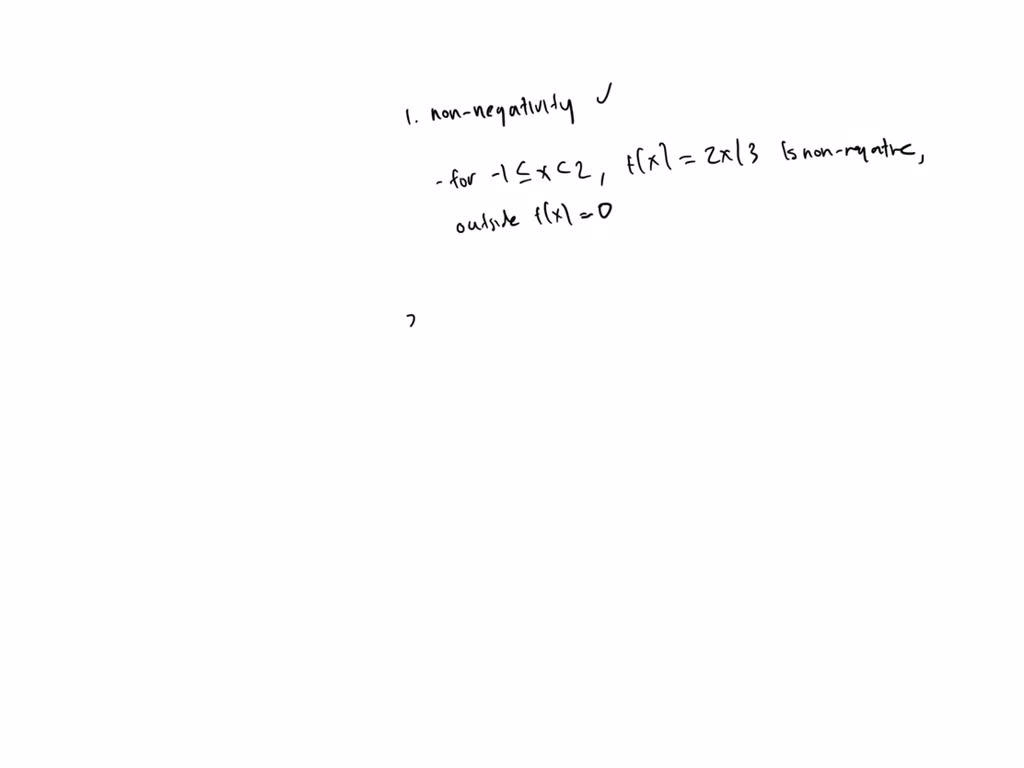 1. non-negativity ✓
- for -1 ≤ x < 2, f(x) = 2x/3 is non-negative,
outside f(x) = 0
2